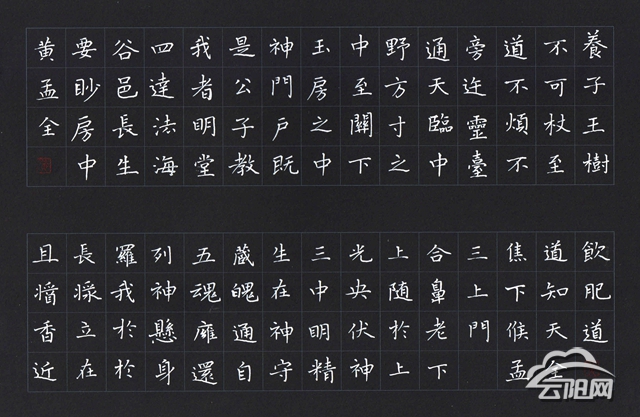 養子王樹
不可杖至
道不煩不
旁迮靈臺
通天臨中
野方寸之
中至關下
玉房之中
神門戶既
是公子教
我者明堂
四達法海
谷邑長生
要眇房中
黃孟全
飲肥道
道知天
焦下候孟
三上門
合鼻老下
上随於上
光央伏神
三中明精
生在神守
藏魄通自
五魂還
列神懸身
羅我於於
長立在
且香近
云阳网